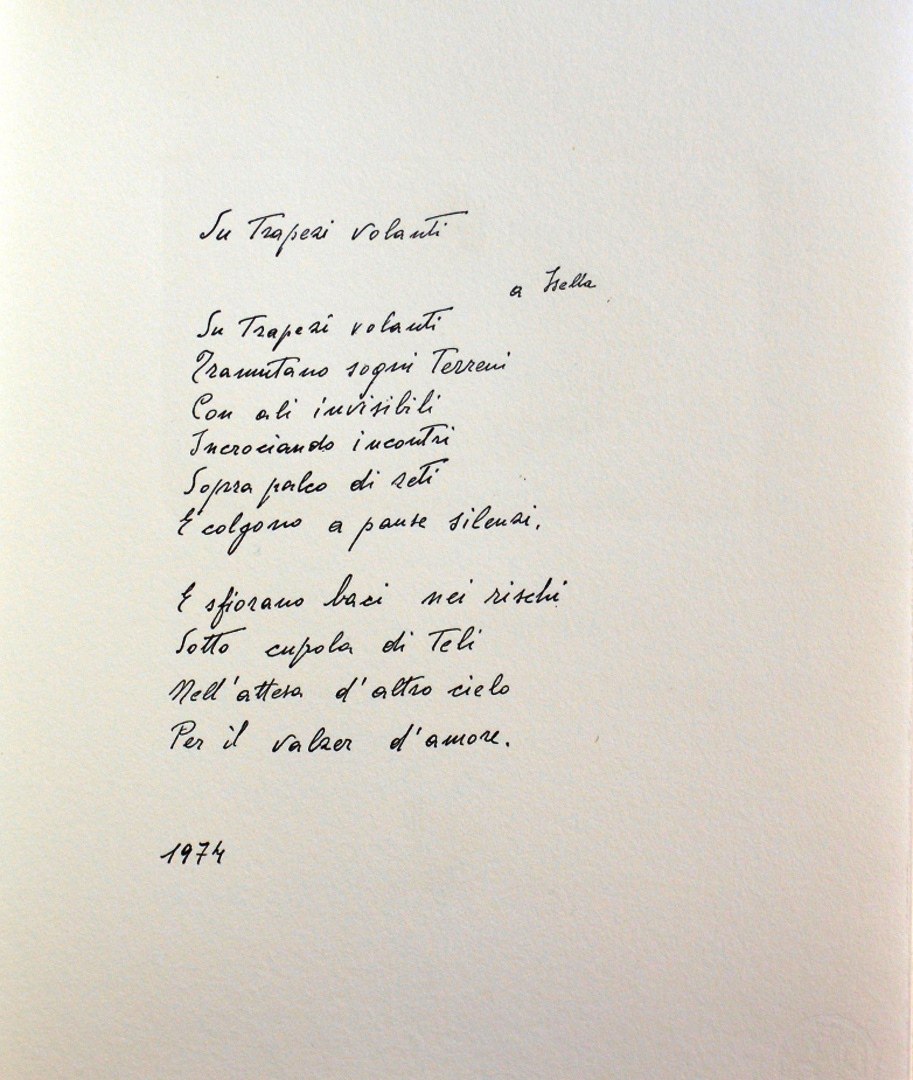 Su Trapezi volanti
a Isella
Su Trapezi volanti
Tramutano sogni Terreni
Con ali invisibili
Incrociando incontri
Sopra palco di reti
E colgono a pause silenzi.
E sfiorano baci nei rischi
Sotto cupola di Teli
Nell'attesa d'altro cielo
Per il valzer d'amore.
1974